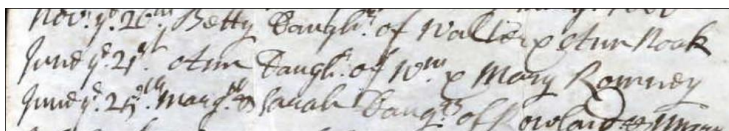 Nov: ye. 26th, Betty Daughtr. of Walter & Ann Noak
June ye. 21st. Ann Daughr. of Wm. & Mary Romney
June ye. 25th. Marg: & Sarah Daugrs of Rowland &